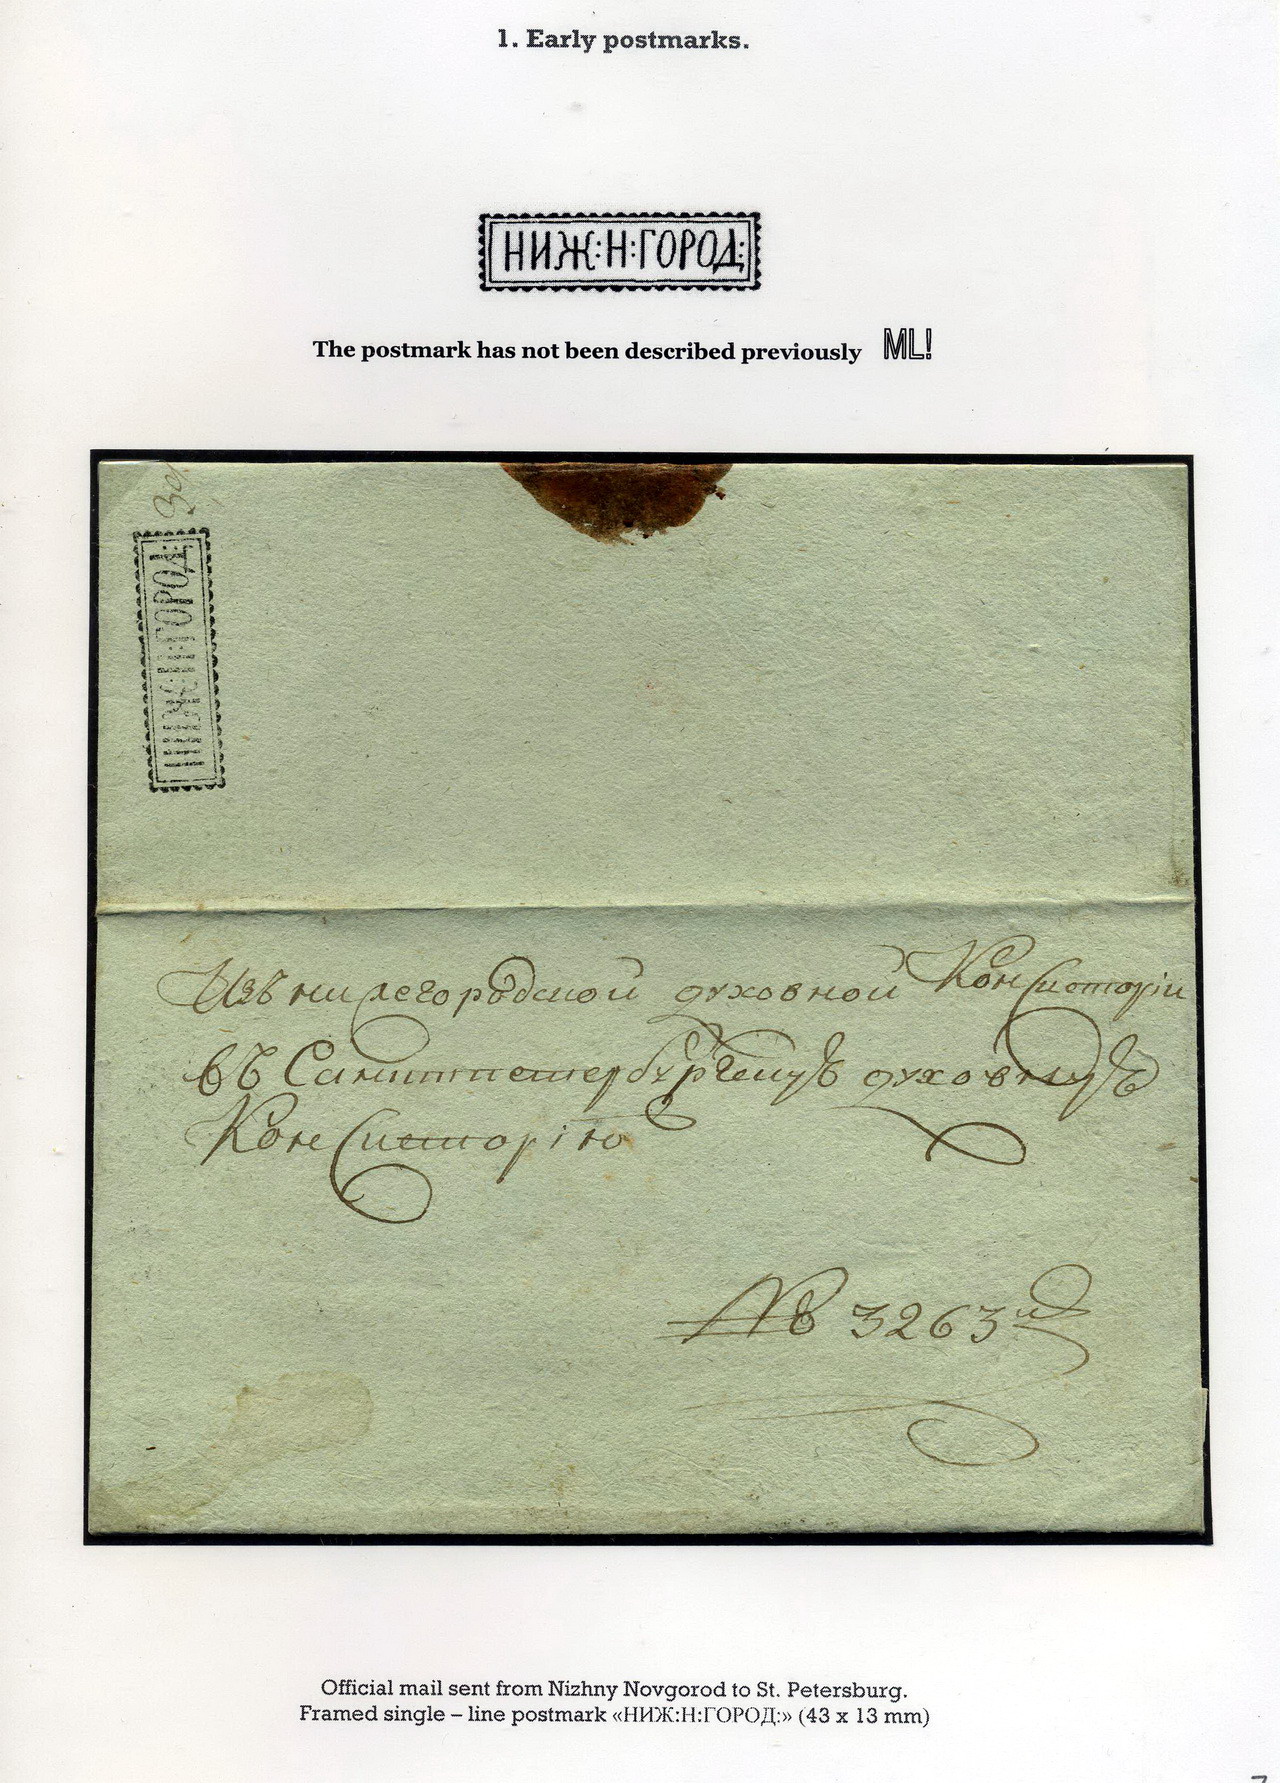 1. Early postmarks.
НИЖ:Н:ГОРОД:
The postmark has not been described previously ML!
НИЖ:Н:ГОРОД:
Изъ нижегородской духовной Консисторіи
въ Санктпетербургскую духовную
Консисторію
№ 3263й
Official mail sent from Nizhny Novgorod to St. Petersburg.
Framed single – line postmark «НИЖ:Н:ГОРОД:» (43 x 13 mm)